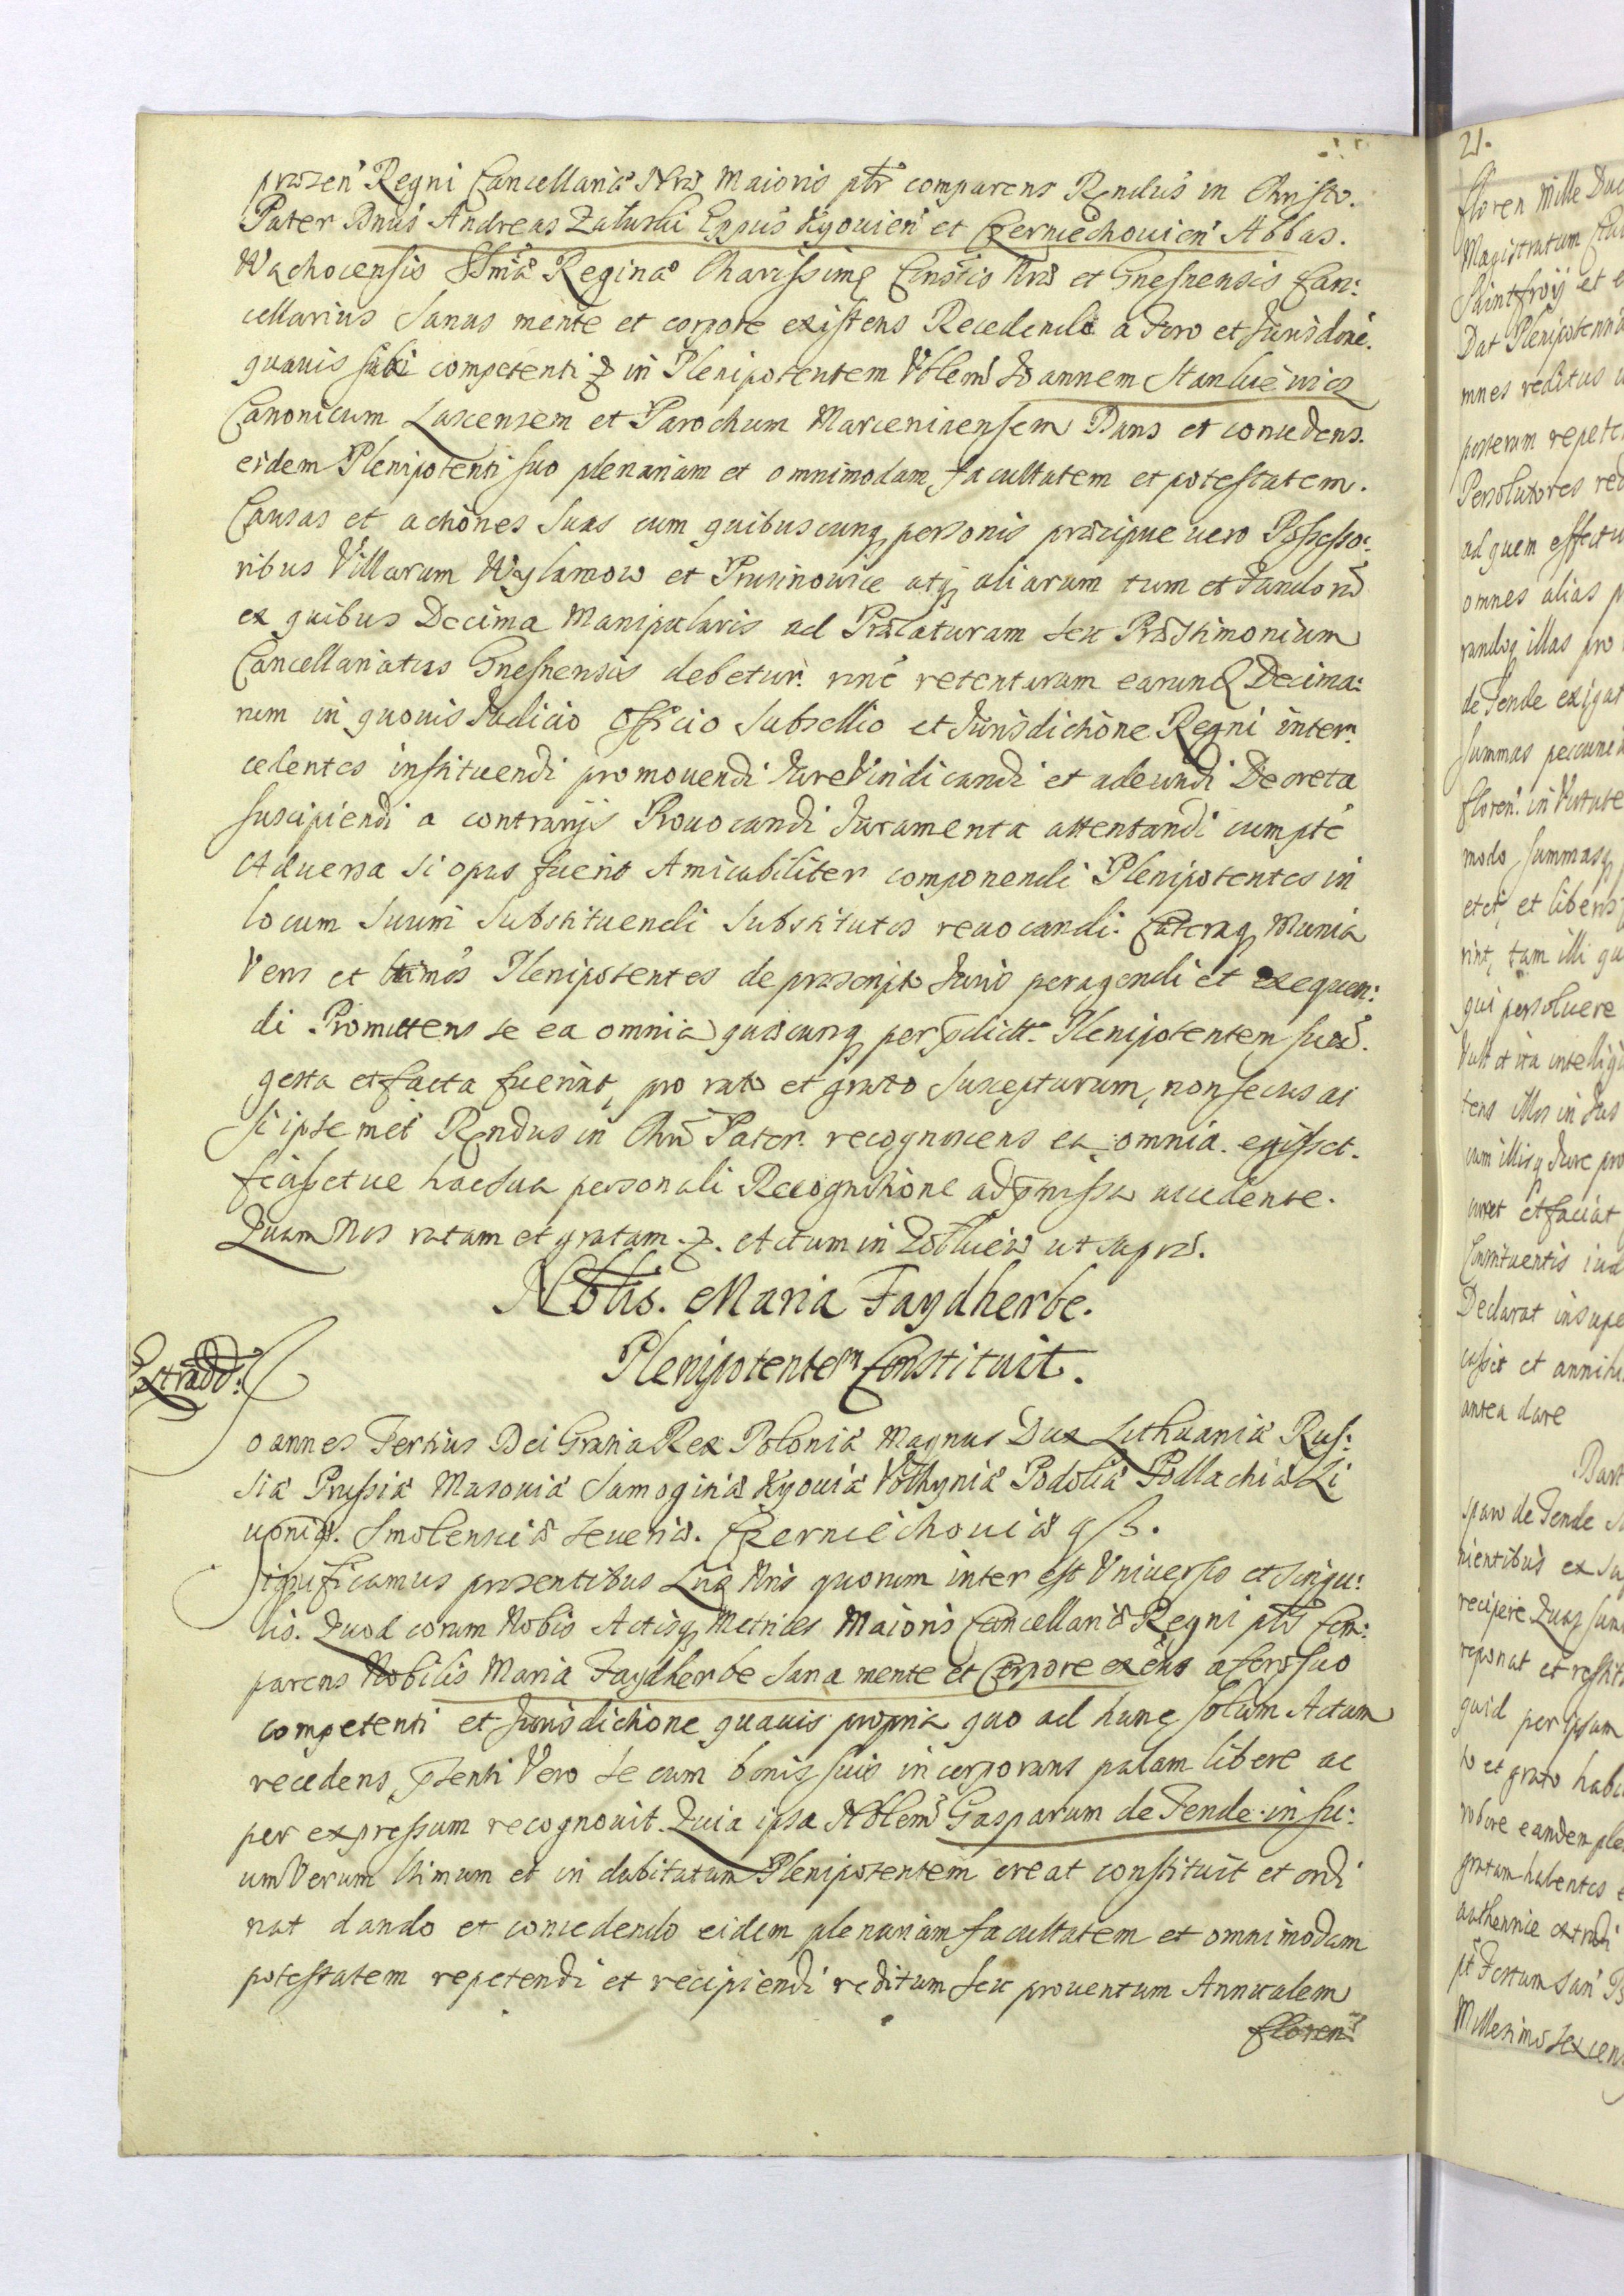 præsen Regni Cancellariæ Nræ Maioris ptr comparens Rendus in Christo.
Pater Dnus Andreas Załuski Eppus Kyouien et Czerniechouien Abbas.
Wachocensis Ssmæ Reginæ Charissimę Consortis Nræ et Gnesnensis Can:
cellarius Sanus mente et corpore existens Recedendo a Foro et Jurisdone.
quauis sibi competenti in Plenipotentem Vblem Joannem Stankiewicz
Canonicum Lascensem et Parochum Marceninensem Dans et concedens.
eidem Plenipotenti suo plenariam et omnimodam facultatem et potestatem.
Causas et actiones Suas cum quibuscunq personis præcipue uero Possesso:
ribus Villarum Wylamow et Prusinowice atq aliarum tum et
ex quibus Decima Manipularis ad Prælaturam seu Præstimonium
Cancellariatus Gnesnensis debetur. rnē retenturum earund Decima:
rum in quouis Judicio Officio Subsellio et Jurisdictione Regni inter
cedentes instituendi promouendi Jure Vindicandi et adeundi Decreta
suscipiendi a contrarijs Prouocandi Juramenta attentandi cumpte
Aduersa si opus fuerit Amicabiliter componendi Plenipotentes in
locum Suum Substituendi Substitutos reuocandi. Cæteraq Munia
Veri et ltimos Plenipotentes de præscripto Juris peragendi et exequen:
di Promittens se ea omnia quæcunq per pdict Plenipotentem suū.
gesta et facta fuerint, pro rato et grato Suscepturum, non secus ac
si ipse met Rendus in Chro Pater. recognoscens ea omnia. egisset.
fecissetue hac sua personali Recognitione ad pmissa accedente.
Quam Nos ratam et gratam. Actum in Zolkiew ut supra.
Nblis. Maria Faydherbe.
Plenipotentem Constituit.
Extradd:
Joannes Tertius Dei Gratia Rex Poloniæ Magnus Dux Lithuaniæ Rus:
siæ Prussiæ Masouiæ Samogitiæ Kyouiæ Volhyniæ Podoliæ Podlachiæ Li
uoniæ. Smolensciæ Seueriæ. Czerniechouiæ qß.
Significamus præsentibus Lris Nris quorum inter est Vniuersis et singu:
lis. Quod coram Nobis Actisq Metrices Maioris Cancellariæ Regni ptr Com:
parens Nobilis Maria Faydherbe Sana mente et Corpore exens a foro suo
competenti et Jurisdictione quauis propria quo ad hunc solum Actum
recedens, psenti Vero se cum bonis suis incorporans palam libere ac
per expressum recognouit. Quia ipsa Nblem Gasparum de Tende in su:
um Verum ltimum et indubitatum Plenipotentem creat constituit et ordi
nat dando et concedendo eidem plenariam facultatem et omnimodam
potestatem repetendi et recipiendi reditum seu prouentum Annualem
floren
21.
floren Mille
Magistratum
Saintfroy et
Dat Plenipotenti
mnes reditus
posterum
Persolutores
ad quem
omnes alias
randoq illas pro
de Tende exigat
Summas
floren. in Virtute
modo summasq
etet, et liberis
rint, tam illi
qui persoluere
Vult et ita
tens illos in Jus
cum illisq Jure
curet et faciat
Constituentis
Declarat insuper
cassat et
antea dare
sparo de Tende
nientibus ex
recipere Quas
reponat et
quid per ipsum
to et grato
robore eandem
gratam habentes
authentice extradi
pt Festum San
Millesimo sexcen